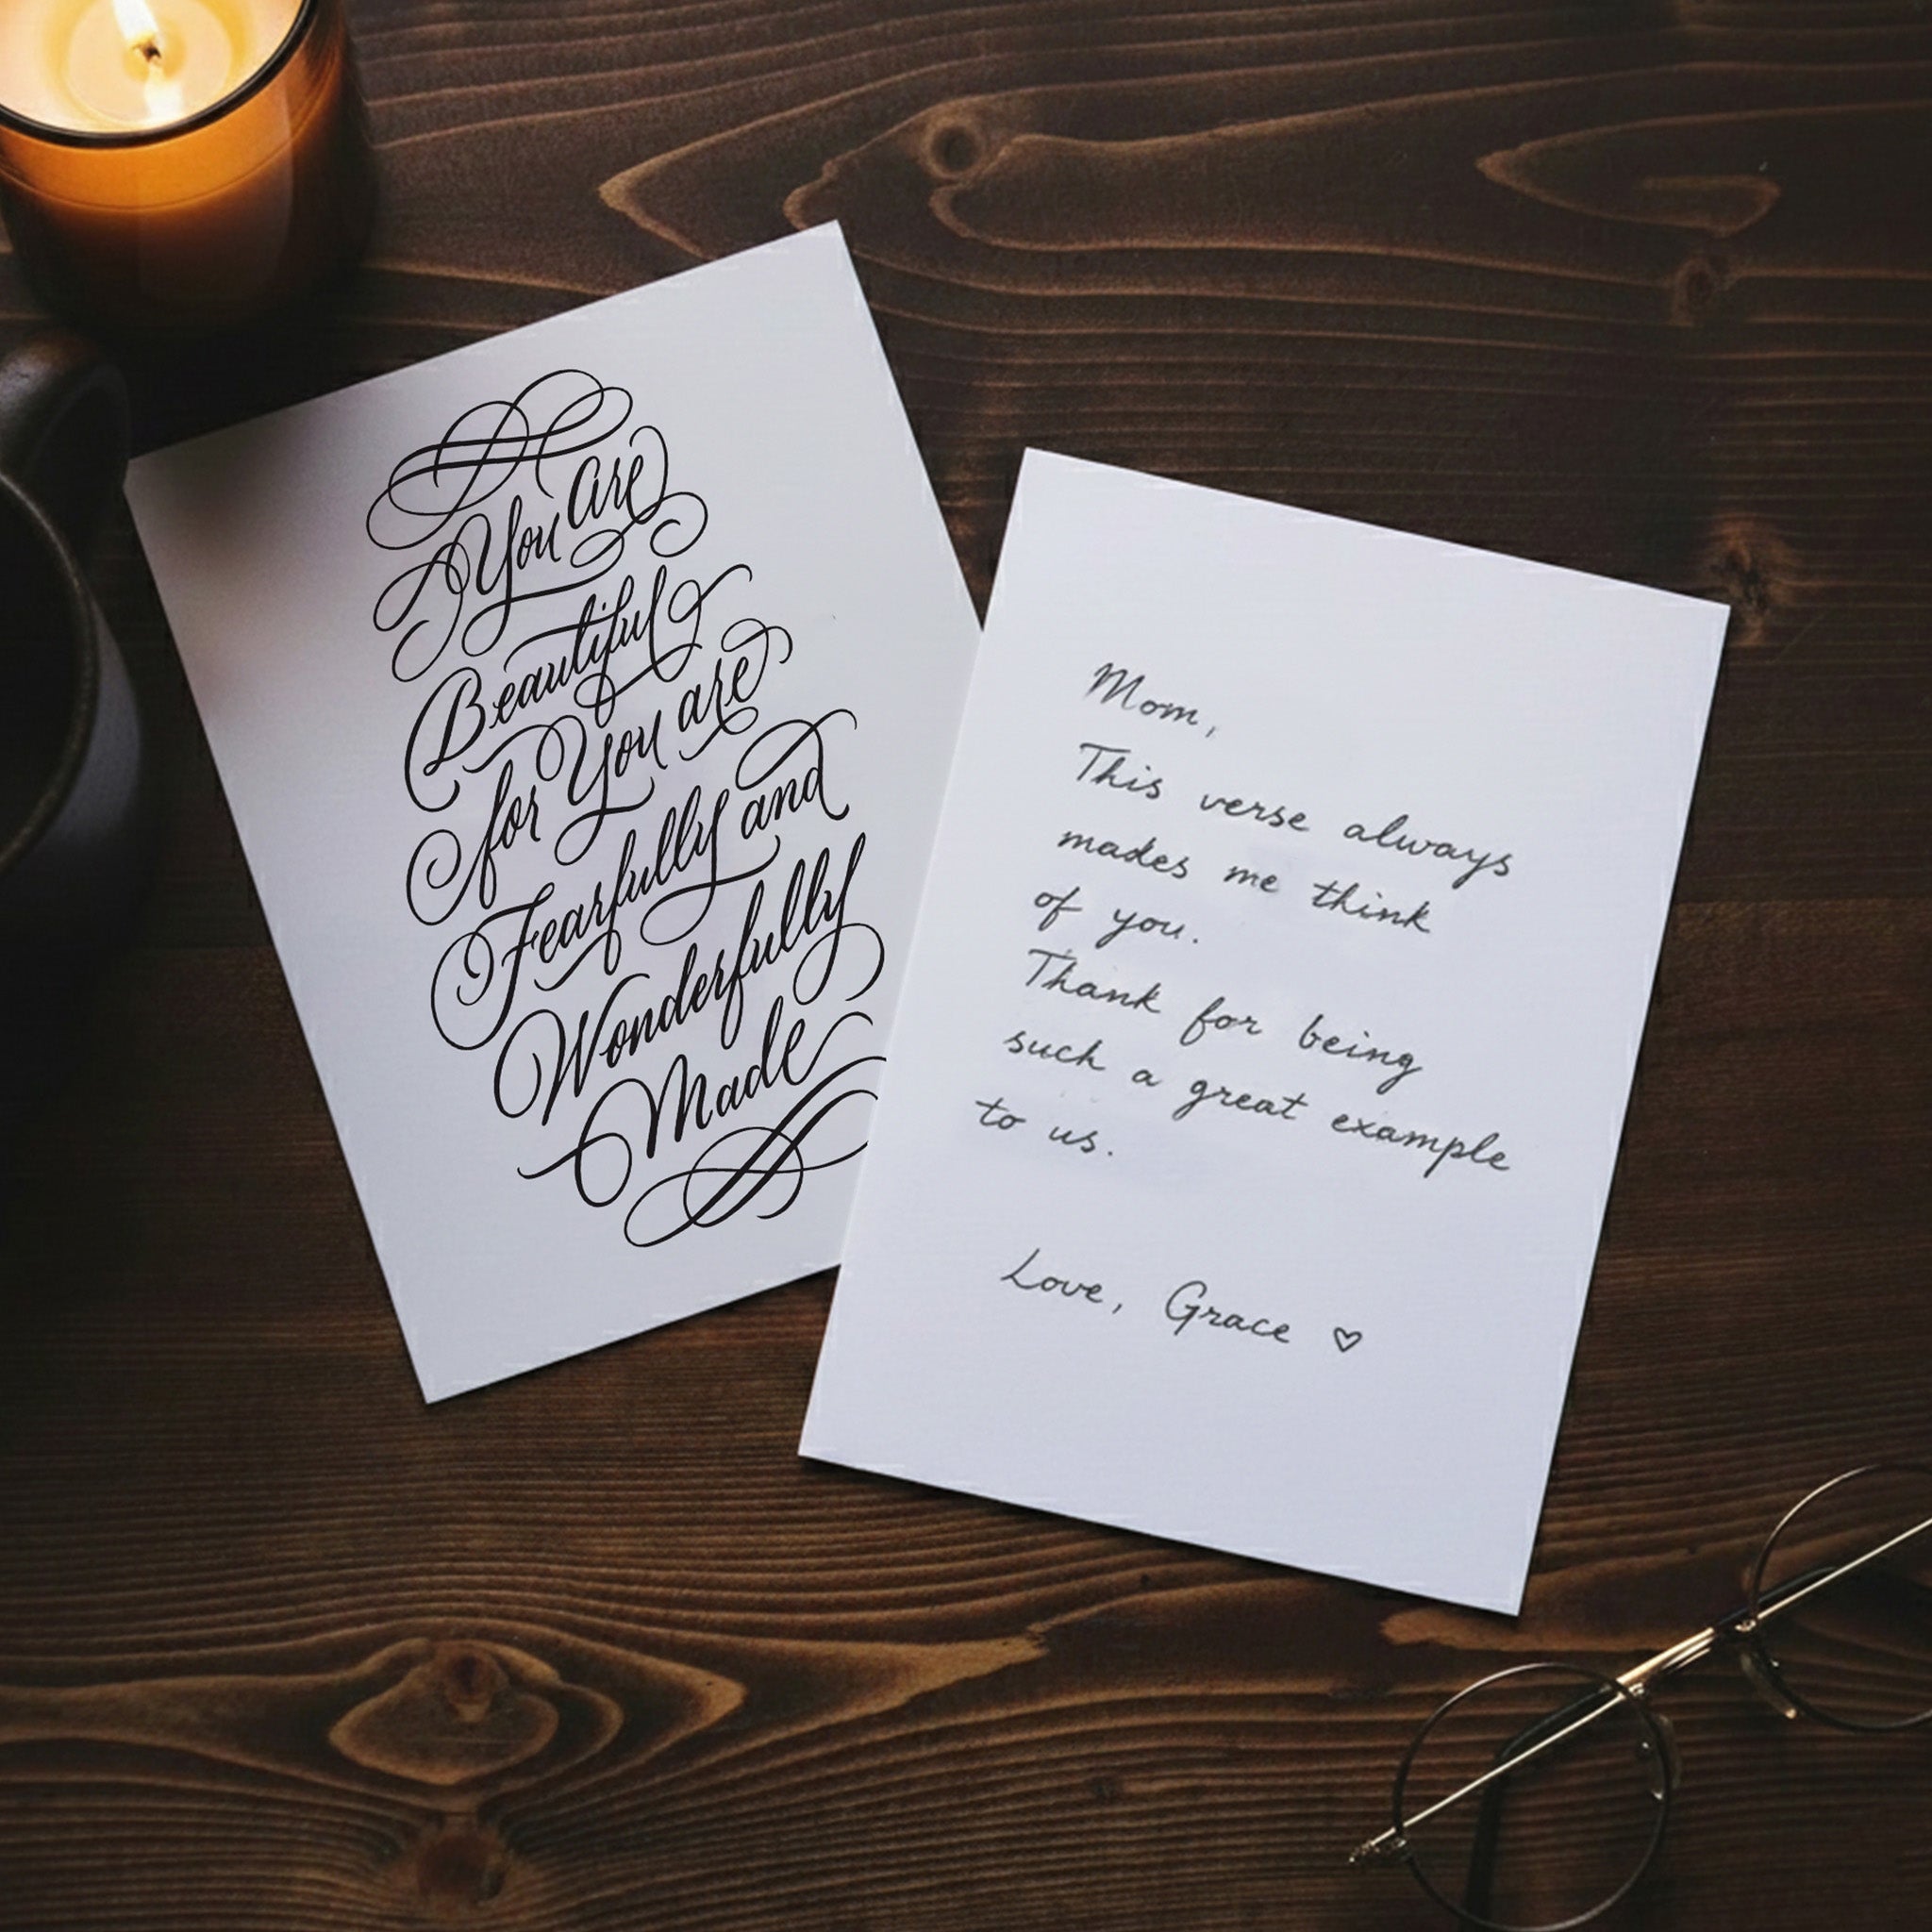 You are
Beautiful
for You are
Fearfully and
Wonderfully
Made
Mom,
This verse always
mades me think
of you.
Thank for being
such a great example
to us.
Love, Grace ♡